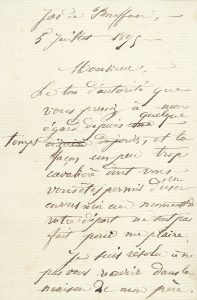 Jas de Bouffan,
5 Juillet 1895
Monsieur,
Le ton d'autorité que
vous prenez à mon
égard depuis quelque
temps et la
façon un peu trop
cavalière dont vous
vous êtes permis d'user
envers moi au moment de
votre départ ne sont pas
fait pour me plaire.
Je suis résolu à ne
pas vous recevoir dans la
maison de mon père.